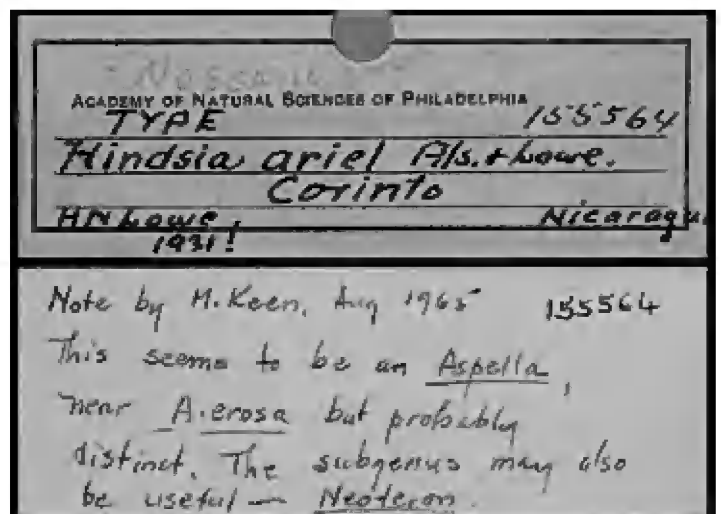 ACADEMY OF NATURAL SCIENCES OF PHILADELPHIA
TYPE 155564
Hindsia ariel Pils. & Lowe.
Corinto
HN Lowe, Nicaragu
1931!
Note by M. Keen, Aug 1965 155564
This seems to be an Aspella,
near A. erosa but probably
distinct. The subgenus may also
be useful — Neotecon.